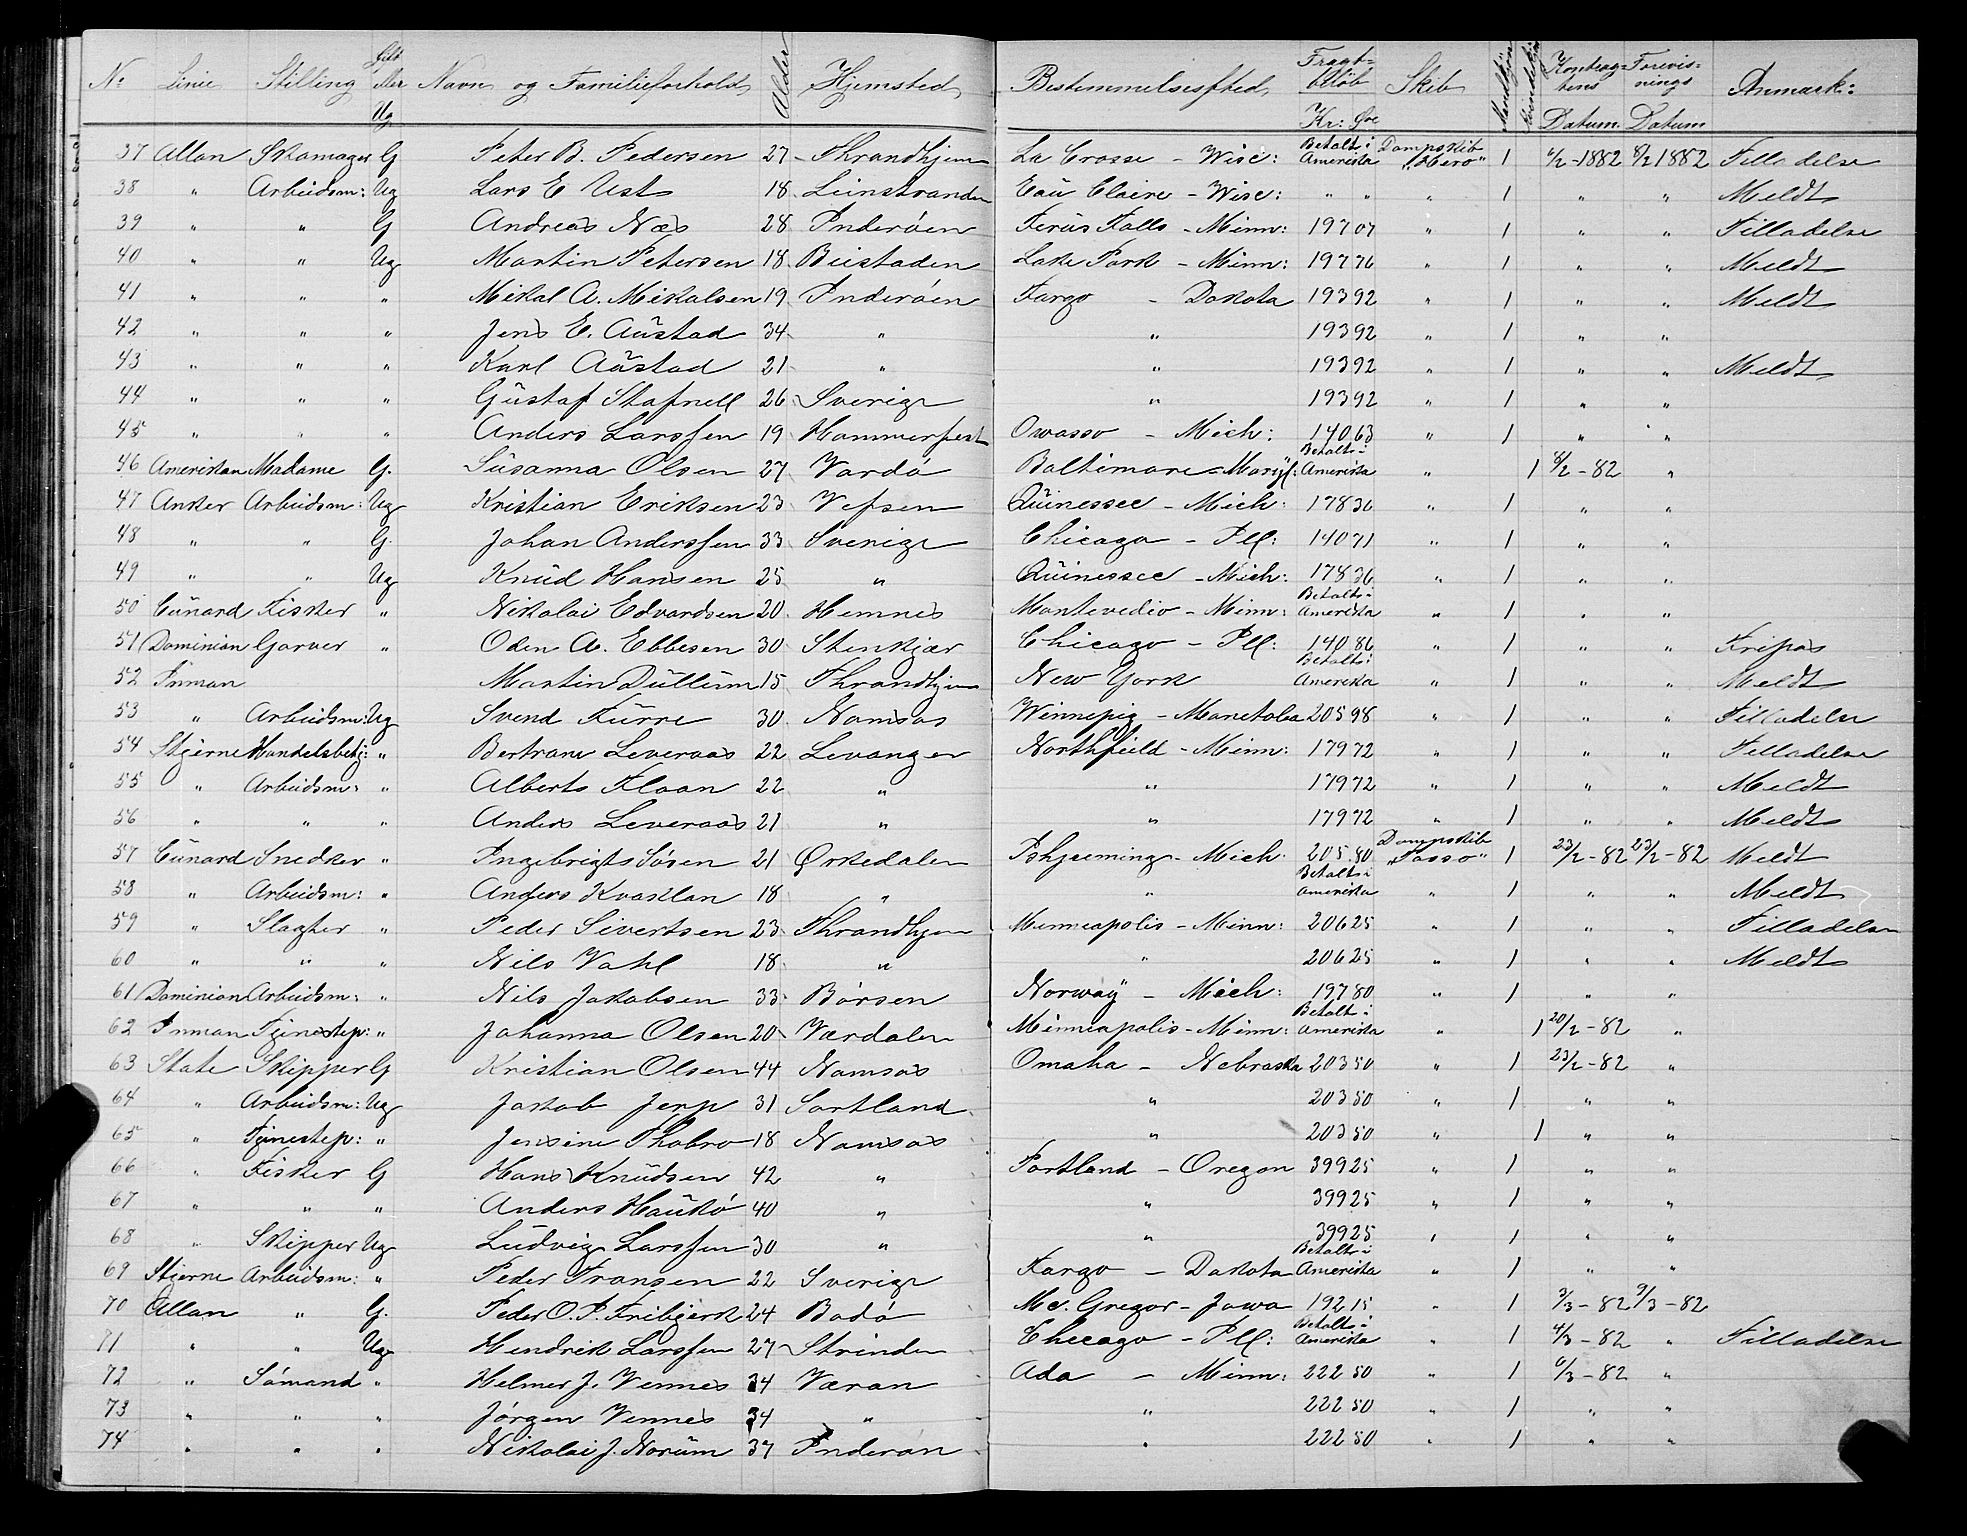 No Linie Stilling Gift eller Ug. Navn og Familieforhold Alder Hjemsted Bestemmelsessted Fragtbeløb Kr: Øre Skib Mandkjøn Kvindekjøn Kontraktens Datum Forevisnings Datum Anmærk:
37 Allan Skomager G Peter B. Pedersen 27 Throndhjem La Crosse - Wisc: Betalt i Amerika Dampskib "Hero" 1 6/2-1882 8/2 1882 Tilladelse
38 " Arbeidsm: Ug Lars E Ust 18 Leinstranden Eau Claire - Wisc: " " " 1 " " Meldt
39 " " G Andreas Næs 28 Inderøen Ferüs Falls - Minn: 197 07 " 1 " " Tilladelse
40 " " Ug Martin Petersen 18 Beistaden Lake Park - Minn: 197 76 " 1 " " Meldt
41 " " " Mikal A. Mikalsen 19 Inderøen Fargo - Dakota 193 92 " 1 " " Meldt
42 " " " Jens E. Aüstad 34 " " 193 92 1 " "
43 " " " Karl Aüstad 21 " " 193 92 " 1 " " Meldt
44 " " " Güstaf Stafnell 26 Sverige " 193 92 " 1 " "
45 " " " Anders Larssen 19 Hammerfest Owasso - Mich: 140 63 " 1 " "
46 Amerikan Madame G. Süsanna Olsen 27 Vardø Baltimore - Maryl: Betalt i Amerika " 1 8/2-82 "
47 Anker Arbeidsm: Ug Kristian Eriksen 23 Vefsen Qüinessee - Mich: 178 36 " 1 " "
48 " " G. Johan Anderssen 33 Sverige Chicago - Ill: 140 71 " 1 " "
49 " " Ug Knüd Hansen 25 " Qüinessee - Mich: 178 36 " 1 " "
50 Cünard Fisker " Nikolai Edvardsen 20 Hemnes Montevedio - Minn: Betalt i Amerika " 1 " "
51 Dominion Garver " Oden A. Ebbesen 30 Stenkjær Chicago - Ill: 140 86 " 1 " " Fripas
52 Inman Martin Düllüm 15 Throndhjem New York Betalt i Amerika " 1 " " Meldt
53 " Arbeidsm: Ug Svend Fürre 30 Namsos Winnepig - Manetoba 205 98 " 1 " " Tilladelse
54 Stjerne Handelsbetj: " Bertram Leveraas 22 Levanger Northfield - Minn: 179 72 " 1 " " Tilladelse
55 " Arbeidsm: " Alberts Floan 22 " " 179 72 " 1 " " Meldt
56 " " " Anders Leveraas 21 " " 179 72 " 1 " " Meldt
57 Cünard Snedker " Ingebrigt Søsen 21 Ørkedalen Ishpeming - Mich: 205 80 Dampskib "Tasso" 1 23/2-82 23/2-82 Meldt
58 " Arbeidsm: " Anders Kvaklan 18 " " Betalt i Amerika " 1 " " Meldt
59 " Slagter " Peder Sivertsen 23 Throndhjem Minneapolis - Minn: 206 25 " 1 " " Tilladelse
60 " " " Nils Vahl 18 " " 206 25 " 1 " " Meldt
61 Dominion Arbeidsm: " Nils Jakobsen 33 Børsen Norway - Mich: 197 80 " 1 " "
62 Inman Tjenestep: " Johanna Olsen 20 Værdalen Minneapolis - Minn: Betalt i Amerika " 1 20/2-82 "
63 State Skipper G Kristian Olsen 44 Namsos Omaha - Nebraska 203 50 " 1 23/2-82 "
64 " Arbeidsm: Ug Jakob Jerp 31 Sortland " 203 50 " 1 " "
65 " Tjenestep: " Jensine Thobro 18 Namsos " 203 50 " 1 " "
66 " Fisker G Hans Knüdsen 42 " Portland - Oregon 399 25 " 1 " "
67 " " " Anders Haükø 40 " " 399 25 " 1 " "
68 " Skipper Ug Lüdvig Larssen 30 " " 399 25 " 1 " "
69 Stjerne Arbeidsm: " Peder Fransen 22 Sverige Fargo - Dakota Betalt i Amerika " 1 " "
70 Allan " G. Peder O. P. Fribjerk 24 Bodø Mc. Gregor - Jowa 192 15 " 1 3/3-82 9/3-82
71 " " Ug Hendrik Larssen 27 Strinden Checago - Ill: Betalt i Amerika " 1 4/3-82 " Tilladelse
72 " Sømand " Helmer J. Vennes 34 Væran Ada - Minn: 222 50 " 1 6/3-82 "
73 " " " Jørgen Vennes 34 " " 222 50 " 1 " "
74 " " " Nikolai J. Norüm 37 Inderøn " 222 50 " 1 " "